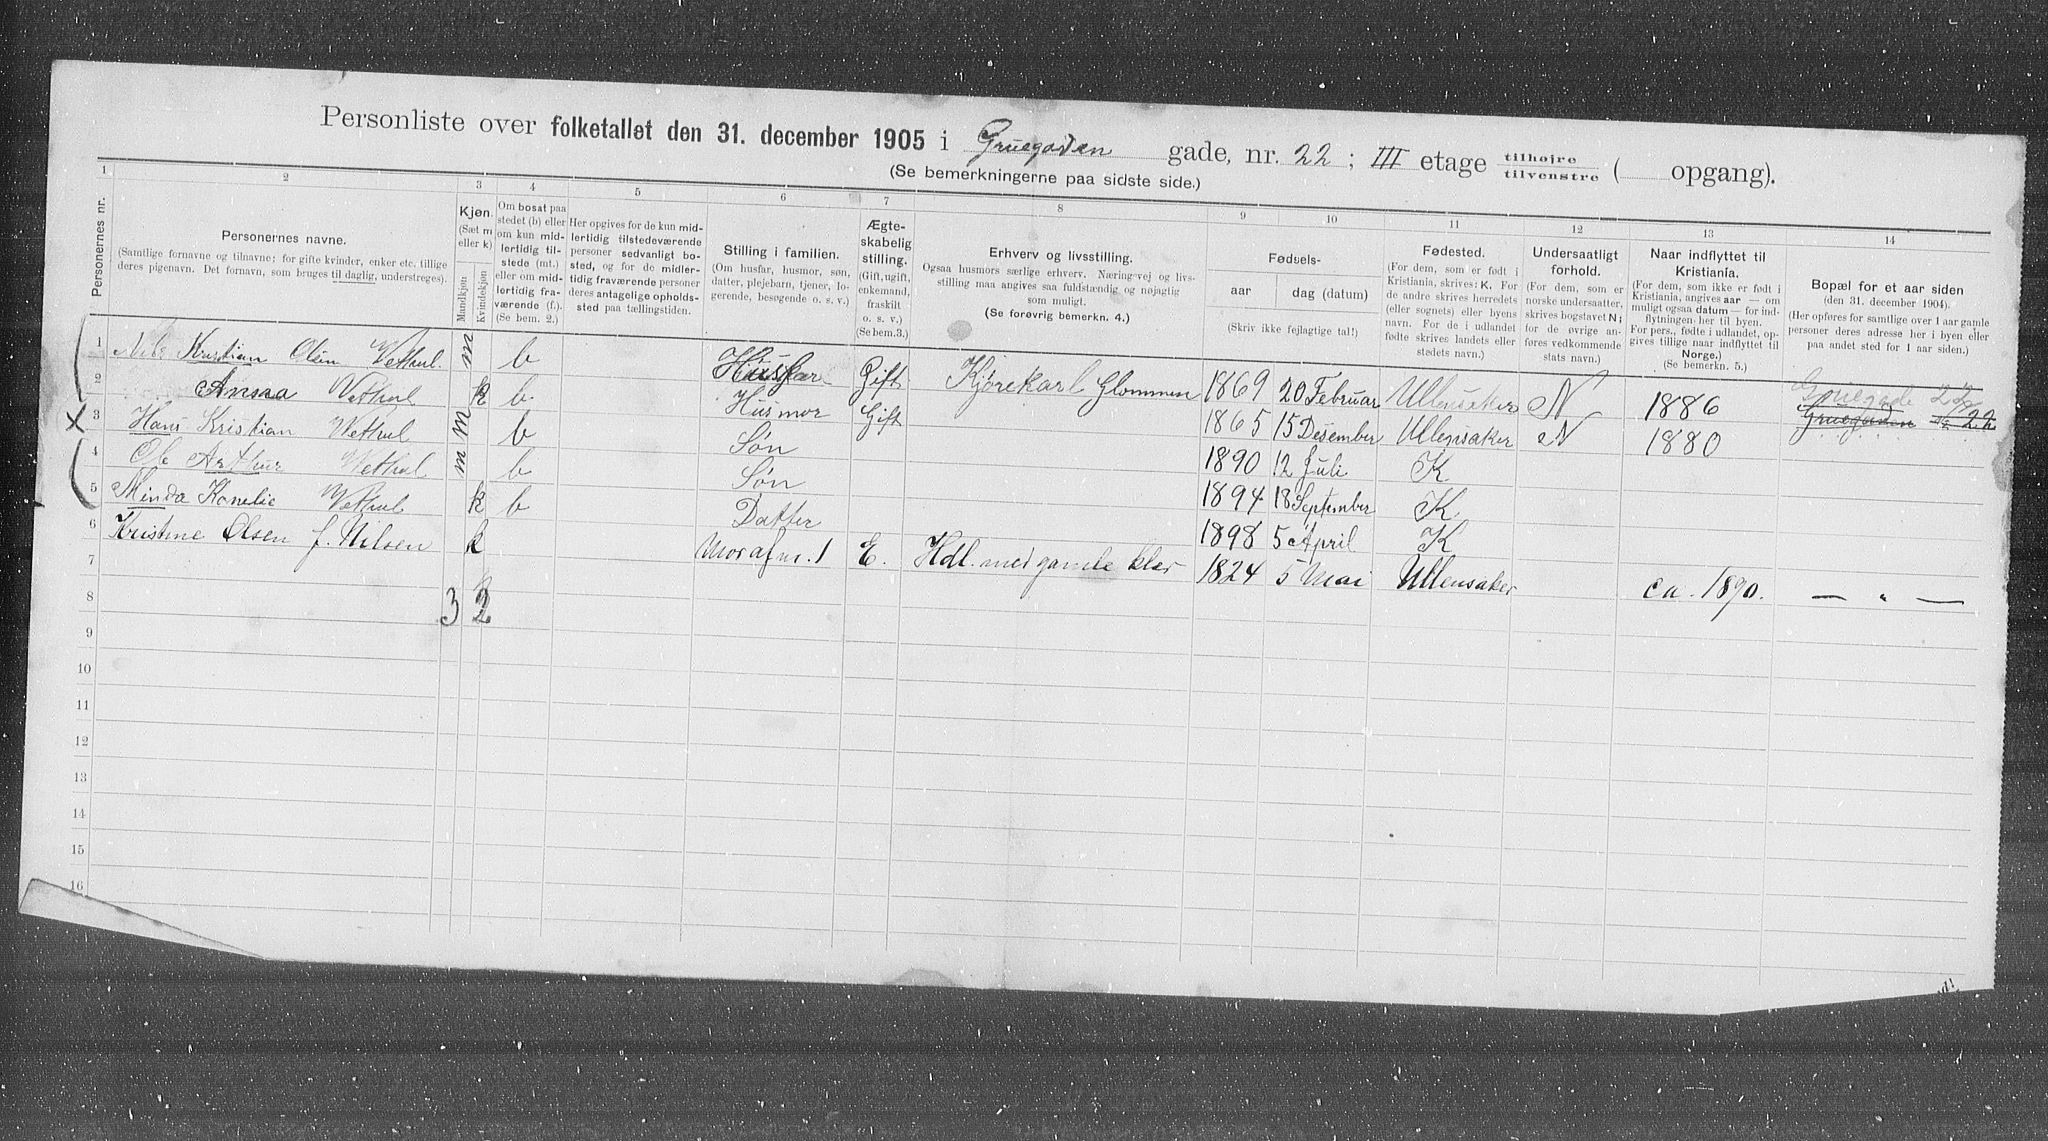 Personliste over folketallet den 31. december 1905 i Gruegaden gade, nr. 22 ; III etage tilhøjre tilvenstre ( opgang).
(Se bemerkningerne paa sidste side.)
1 2 3 4 5 6 7 8 9 10 11 12 13 14
Personernes nr.
Personernes navne.
(Samtlige fornavne og tilnavne; for gifte kvinder, enker etc. tillige
deres pigenavn. Det fornavn, som bruges til daglig, understreges).
Kjøn.
(Sæt m
eller k)
Mandkjøn
Kvindekjøn
Om bosat paa
stedet (b) eller
om kun mid-
lertidig til-
stede (mt.)
eller om mid-
lertidig fra-
værende (f.).
(Se bem. 2.)
Her opgives for de kun mid-
lertidig tilstedeværende
personer sedvanligt bo-
sted, og for de midler-
tidig fraværende personer
deres antagelige opholds-
sted paa tællingstiden.
Stilling i familien.
(Om husfar, husmor, søn,
datter, plejebarn, tjener, lo-
gerende, besøgende o. s. v.)
Ægte-
skabelig
stilling.
(Gift, ugift,
enkemand,
fraskilt
o. s. v.)
(Se bem. 3.)
Erhverv og livsstilling.
Ogsaa husmors særlige erhverv. Næringsvej og livs-
stilling maa angives saa fuldstændig og nøjagtig
som muligt.
(Se forøvrig bemerkn. 4.)
Fødsels-
aar dag (datum)
(Skriv ikke fejlagtige tal!)
Fødested.
(For dem, som er født i
Kristiania, skrives: K. For
de andre skrives herredets
(eller sognets) eller byens
navn. For de i udlandet
fødte skrives landets eller
stedets navn.)
Undersaatligt
forhold.
(For dem, som er
norske undersaatter,
skrives bogstavet N;
for de øvrige an-
føres vedkommende
stats navn.)
Naar indflyttet til
Kristiania.
(For dem, som ikke er født i
Kristiania, angives aar — om
muligt ogsaa datum — for ind-
flytningen her til byen.
For pers., fødte i udlandet, op-
gives tillige naar indflyttet til
Norge.)
(Se bemerkn. 5.)
Bopæl for et aar siden
(den 31. december 1904).
(Her opføres for samtlige over 1 aar gamle
personer deres adresse her i byen eller
paa andet sted for 1 aar siden.)
1 Nils Kristian Olsen Wethul. m b Husfar Gift Kjørekarl Glommen 1869 20 Februar Ullensaker N 1886 Gruegade 22
2 Anna Wethul k b Husmor Gift 1865 15 Desember Ullensaker N 1880 Gruegaden No 22
3 Hans Kristian Wethul m b Søn 1890 12 Juli K
4 Ole Arthur Wethul m b Søn 1894 18 September K
5 Minda Wethul k b Datter 1898 5 April K
6 Kristine Olsen f. Nilsen k Mor af nr. 1 E. Hdl. med gamle klær 1824 5 Mai Ullensaker ca. 1890. — " —
7
8 3 2
9
10
11
12
13
14
15
16